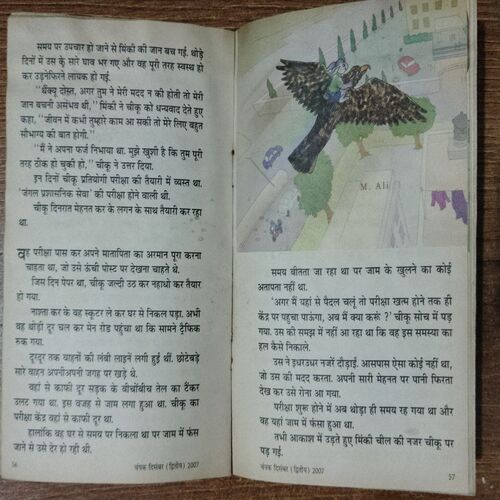 समय पर उपचार हो जाने से मिंकी की जान बच गई. थोड़े
दिनों में उस के सारे घाव भर गए और वह पूरी तरह स्वस्थ हो
कर उड़नेफिरने लायक हो गई.
"थैंक्यू दोस्त, अगर तुम ने मेरी मदद न की होती तो मेरी
जान बचनी असंभव थी," मिंकी ने चीकू को धन्यवाद देते हुए
कहा, "जीवन में कभी तुम्हारे काम आ सकी तो मेरे लिए बहुत
सौभाग्य की बात होगी."
"मैं ने अपना फर्ज निभाया था. मुझे खुशी है कि तुम पूरी
तरह ठीक हो चुकी हो," चीकू ने उत्तर दिया.
इन दिनों चीकू प्रतियोगी परीक्षा की तैयारी में व्यस्त था.
'जंगल प्रशासनिक सेवा' की परीक्षा होने वाली थी.
चीकू दिनरात मेहनत कर के लगन के साथ तैयारी कर रहा
था.
वह परीक्षा पास कर अपने मातापिता का अरमान पूरा करना
चाहता था, जो उसे ऊंची पोस्ट पर देखना चाहते थे.
जिस दिन पेपर था, चीकू जल्दी उठ कर नहाधो कर तैयार हो
गया.
नाश्ता कर के वह स्कूटर ले कर घर से निकल पड़ा. अभी
वह थोड़ी दूर चल कर मेन रोड पहुंचा था कि सामने ट्रैफिक
रुक गया.
दूरदूर तक वाहनों की लंबी लाइनें लगी हुई थीं. छोटेबड़े
सारे वाहन अपनीअपनी जगह पर खड़े थे.
वहां से काफी दूर सड़क के बीचोंबीच तेल का टैंकर
उलट गया था. इस वजह से जाम लगा हुआ था. चीकू का
परीक्षा केंद्र वहां से काफी दूर था.
हालांकि वह घर से समय पर निकला था पर जाम में फंस
जाने से उसे देर हो रही थी.
56
चंपक दिसंबर (द्वितीय) 2007
M. Ali
समय बीतता जा रहा था पर जाम के खुलने का कोई
अतापता नहीं था.
'अगर मैं यहां से पैदल चलूं तो परीक्षा खत्म होने तक ही
केंद्र पर पहुंचा पाऊंगा, अब मैं क्या करूं?' चीकू सोच में पड़
गया. उस की समझ में नहीं आ रहा था कि वह इस समस्या का
हल कैसे निकाले.
उस ने इधरउधर नजरें दौड़ाईं. आसपास ऐसा कोई नहीं था,
जो उस की मदद करता. अपनी सारी मेहनत पर पानी फिरता
देख कर उसे रोना आ गया.
परीक्षा शुरू होने में अब थोड़ा ही समय रह गया था और
वह यहां जाम में फंसा हुआ था.
तभी आकाश में उड़ते हुए मिंकी चील की नजर चीकू पर
पड़ गई.
चंपक दिसंबर (द्वितीय) 2007
57